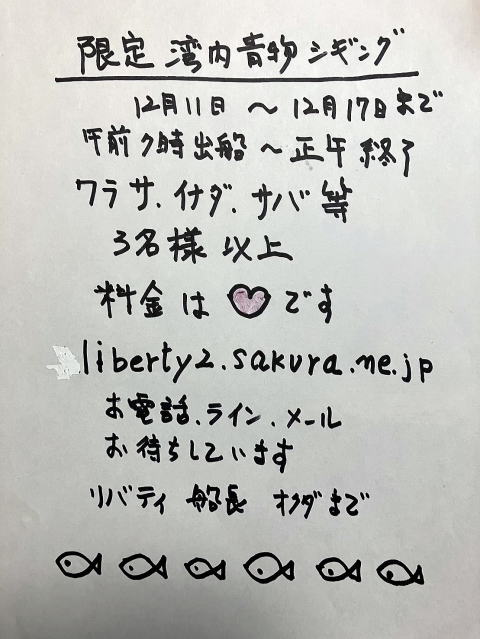 限定 湾内青物ジギング
12月11日 〜 12月17日まで
午前7時出船 〜 正午終了
ワラサ、イナダ、サバ等
3名様以上
料金は♡です
liberty2.sakura.ne.jp
お電話、ライン、メール
お待ちしています
リバティ 船長 オクダまで